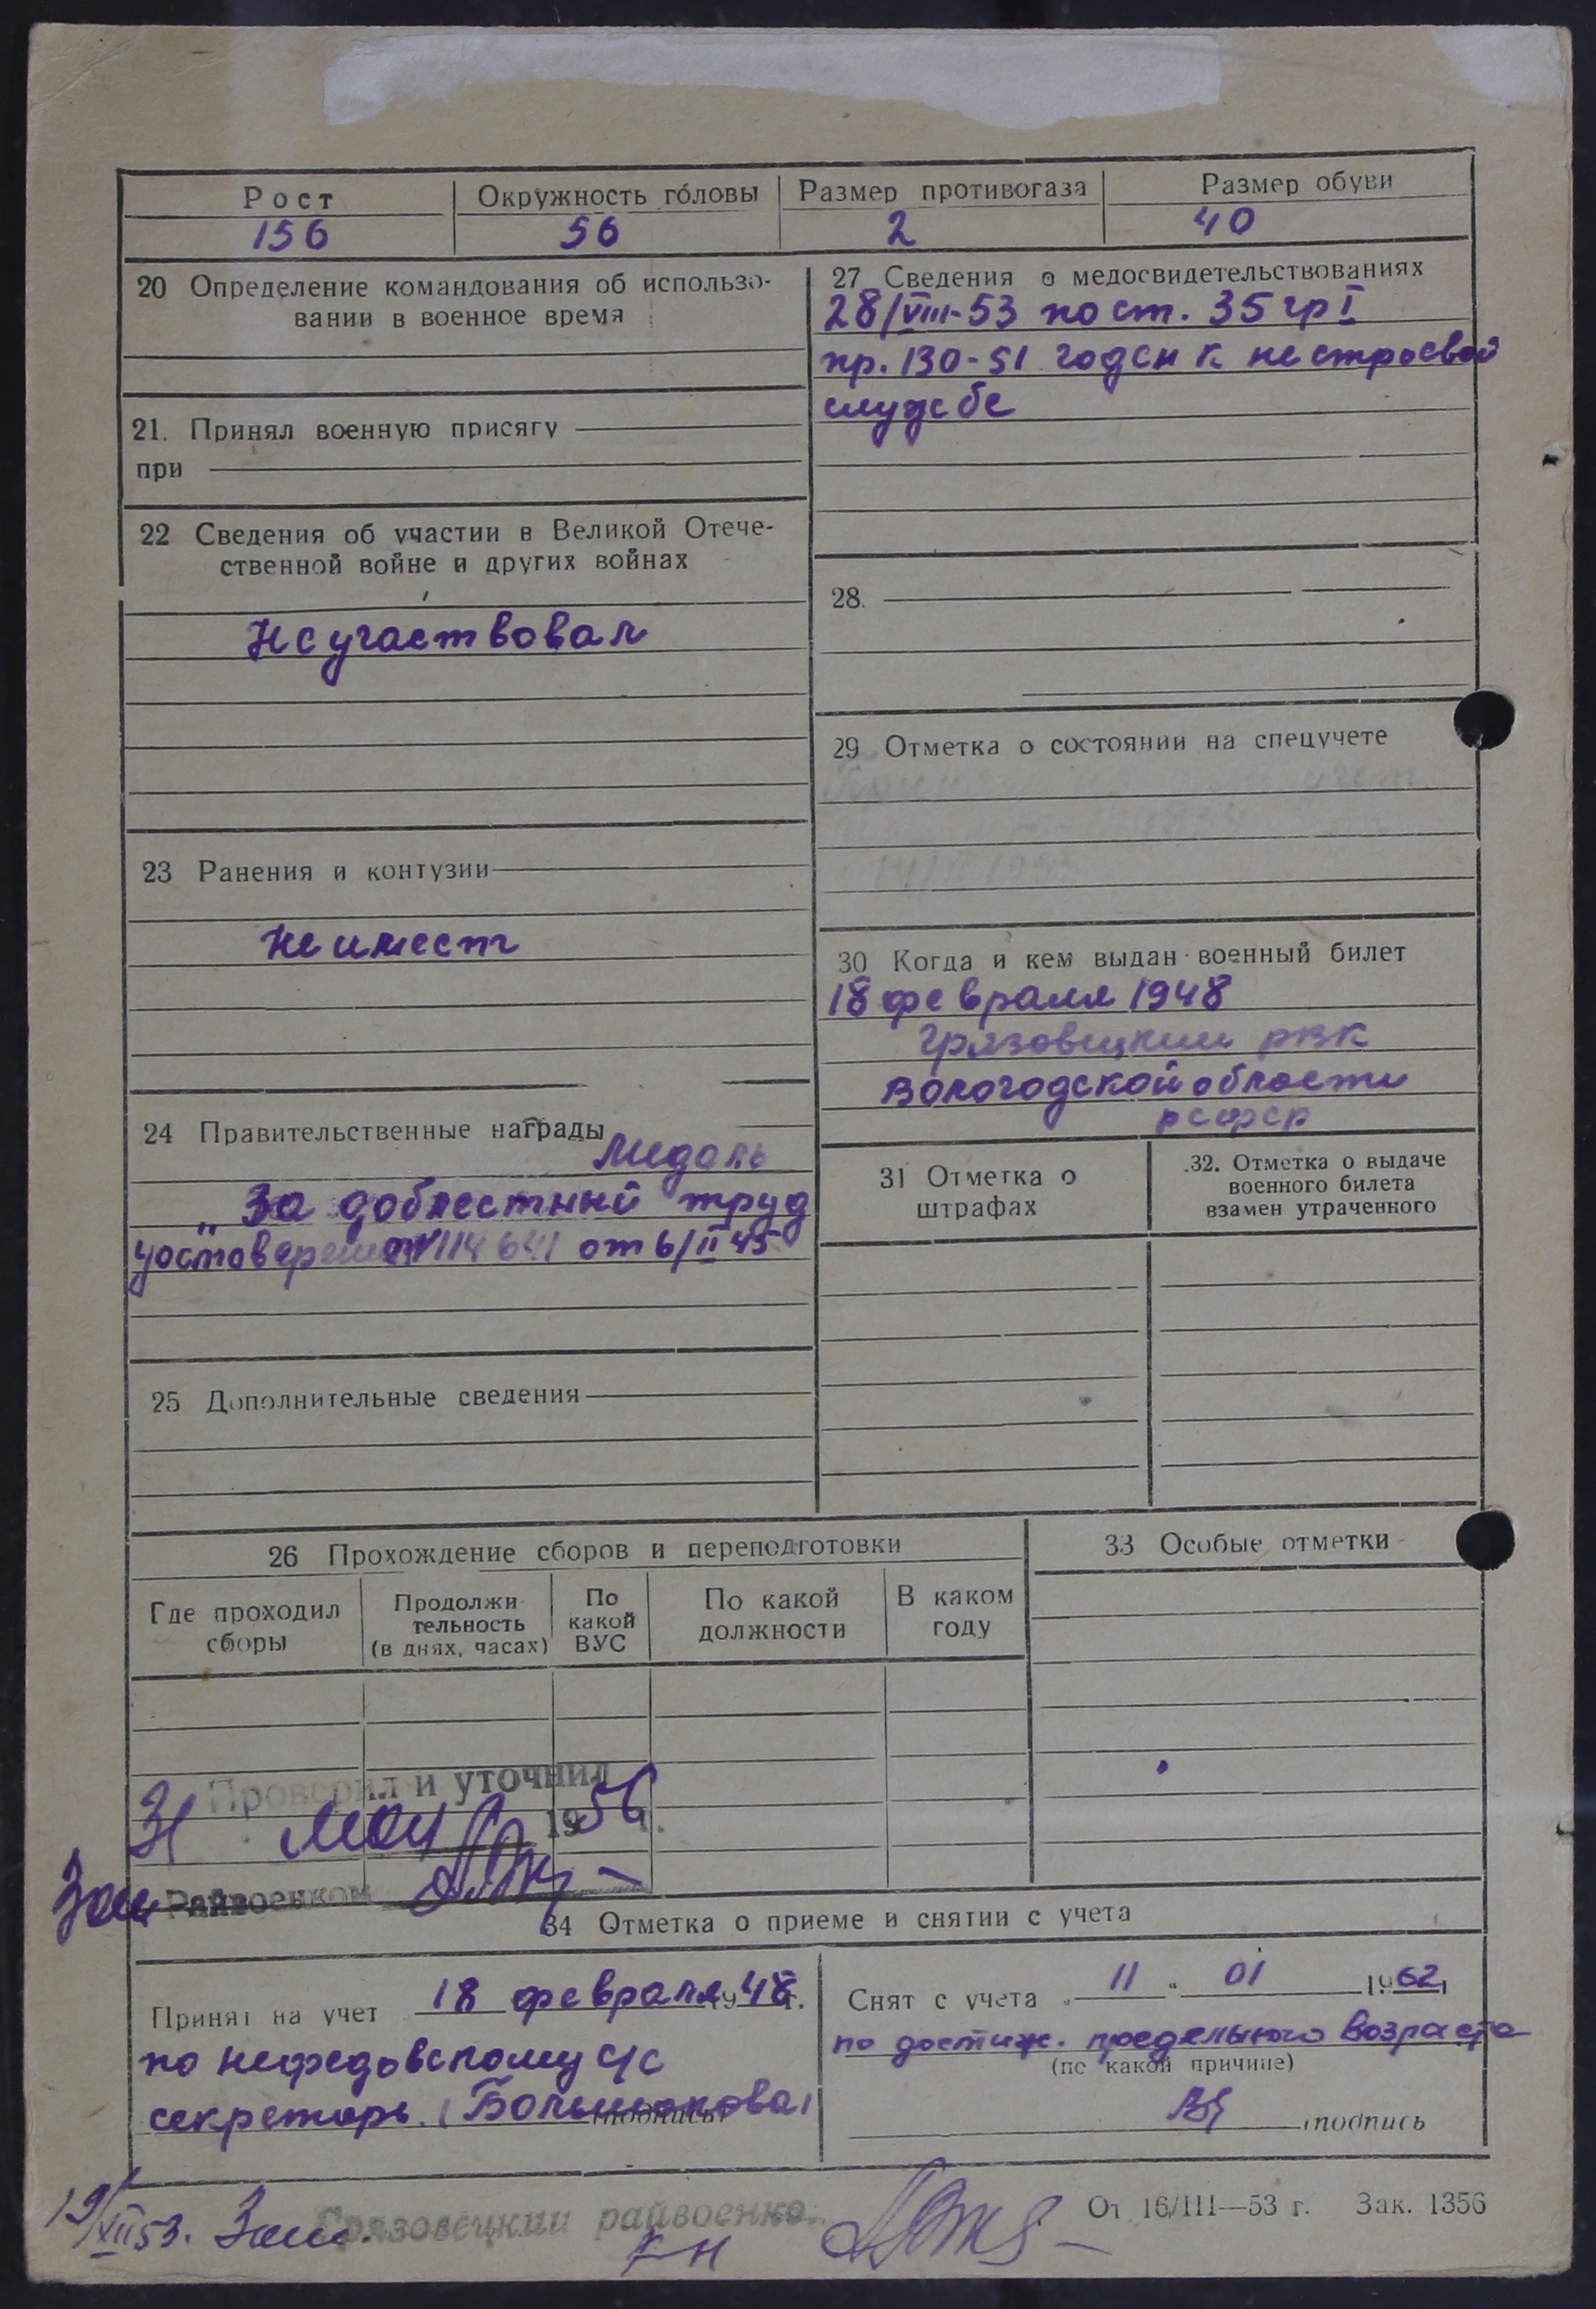 Рост Окружность головы Размер противогаза Размер обуви
156 56 2 40
20 Определение командования об использо-
вании в военное время
21. Принял военную присягу
при
22 Сведения об участии в Великой Отече-
ственной войне и других войнах
Не участвовал
23 Ранения и контузии
Не имеет
24 Правительственные награды
Медаль
„За доблестный труд
от 6/II 45
25 Дополнительные сведения
27 Сведения о медосвидетельствованиях
28/VIII-53 по ст. 35 гр I
пр. 130-51 годен к нестроевой
службе
28.
29 Отметка о состоянии на спецучете
30 Когда и кем выдан военный билет
18 февраля 1948
Грязовецким РВК
Вологодской области
РСФСР
31 Отметка о
штрафах
32. Отметка о выдаче
военного билета
взамен утраченного
26 Прохождение сборов и переподготовки
Где проходил
сборы
Продолжи-
тельность
(в днях, часах)
По
какой
ВУС
По какой
должности
В каком
году
33 Особые отметки
Проверил и уточнил
31 мая 1956 г.
Зам Райвоенком
34 Отметка о приеме и снятии с учета
Принят на учет 18 февраля 1948 г.
по Нефедовскому с/с
секретарь (Большакова)
(подпись)
Снят с учета „ 11 " 01 1962 г.
по достиж. предельного возраста
(по какой причине)
подпись
19/XII 53. Зам. Грязовецкий райвоенко
От 16/III—53 г. Зак. 1356